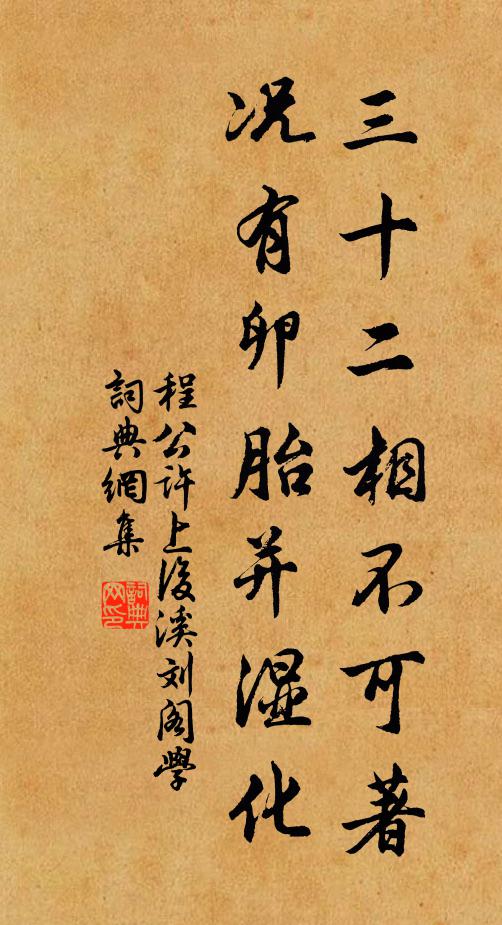 三十二相不可著
况有卵胎并湿化
程公许上後溪刘阁学
詞典網集
詞典網印